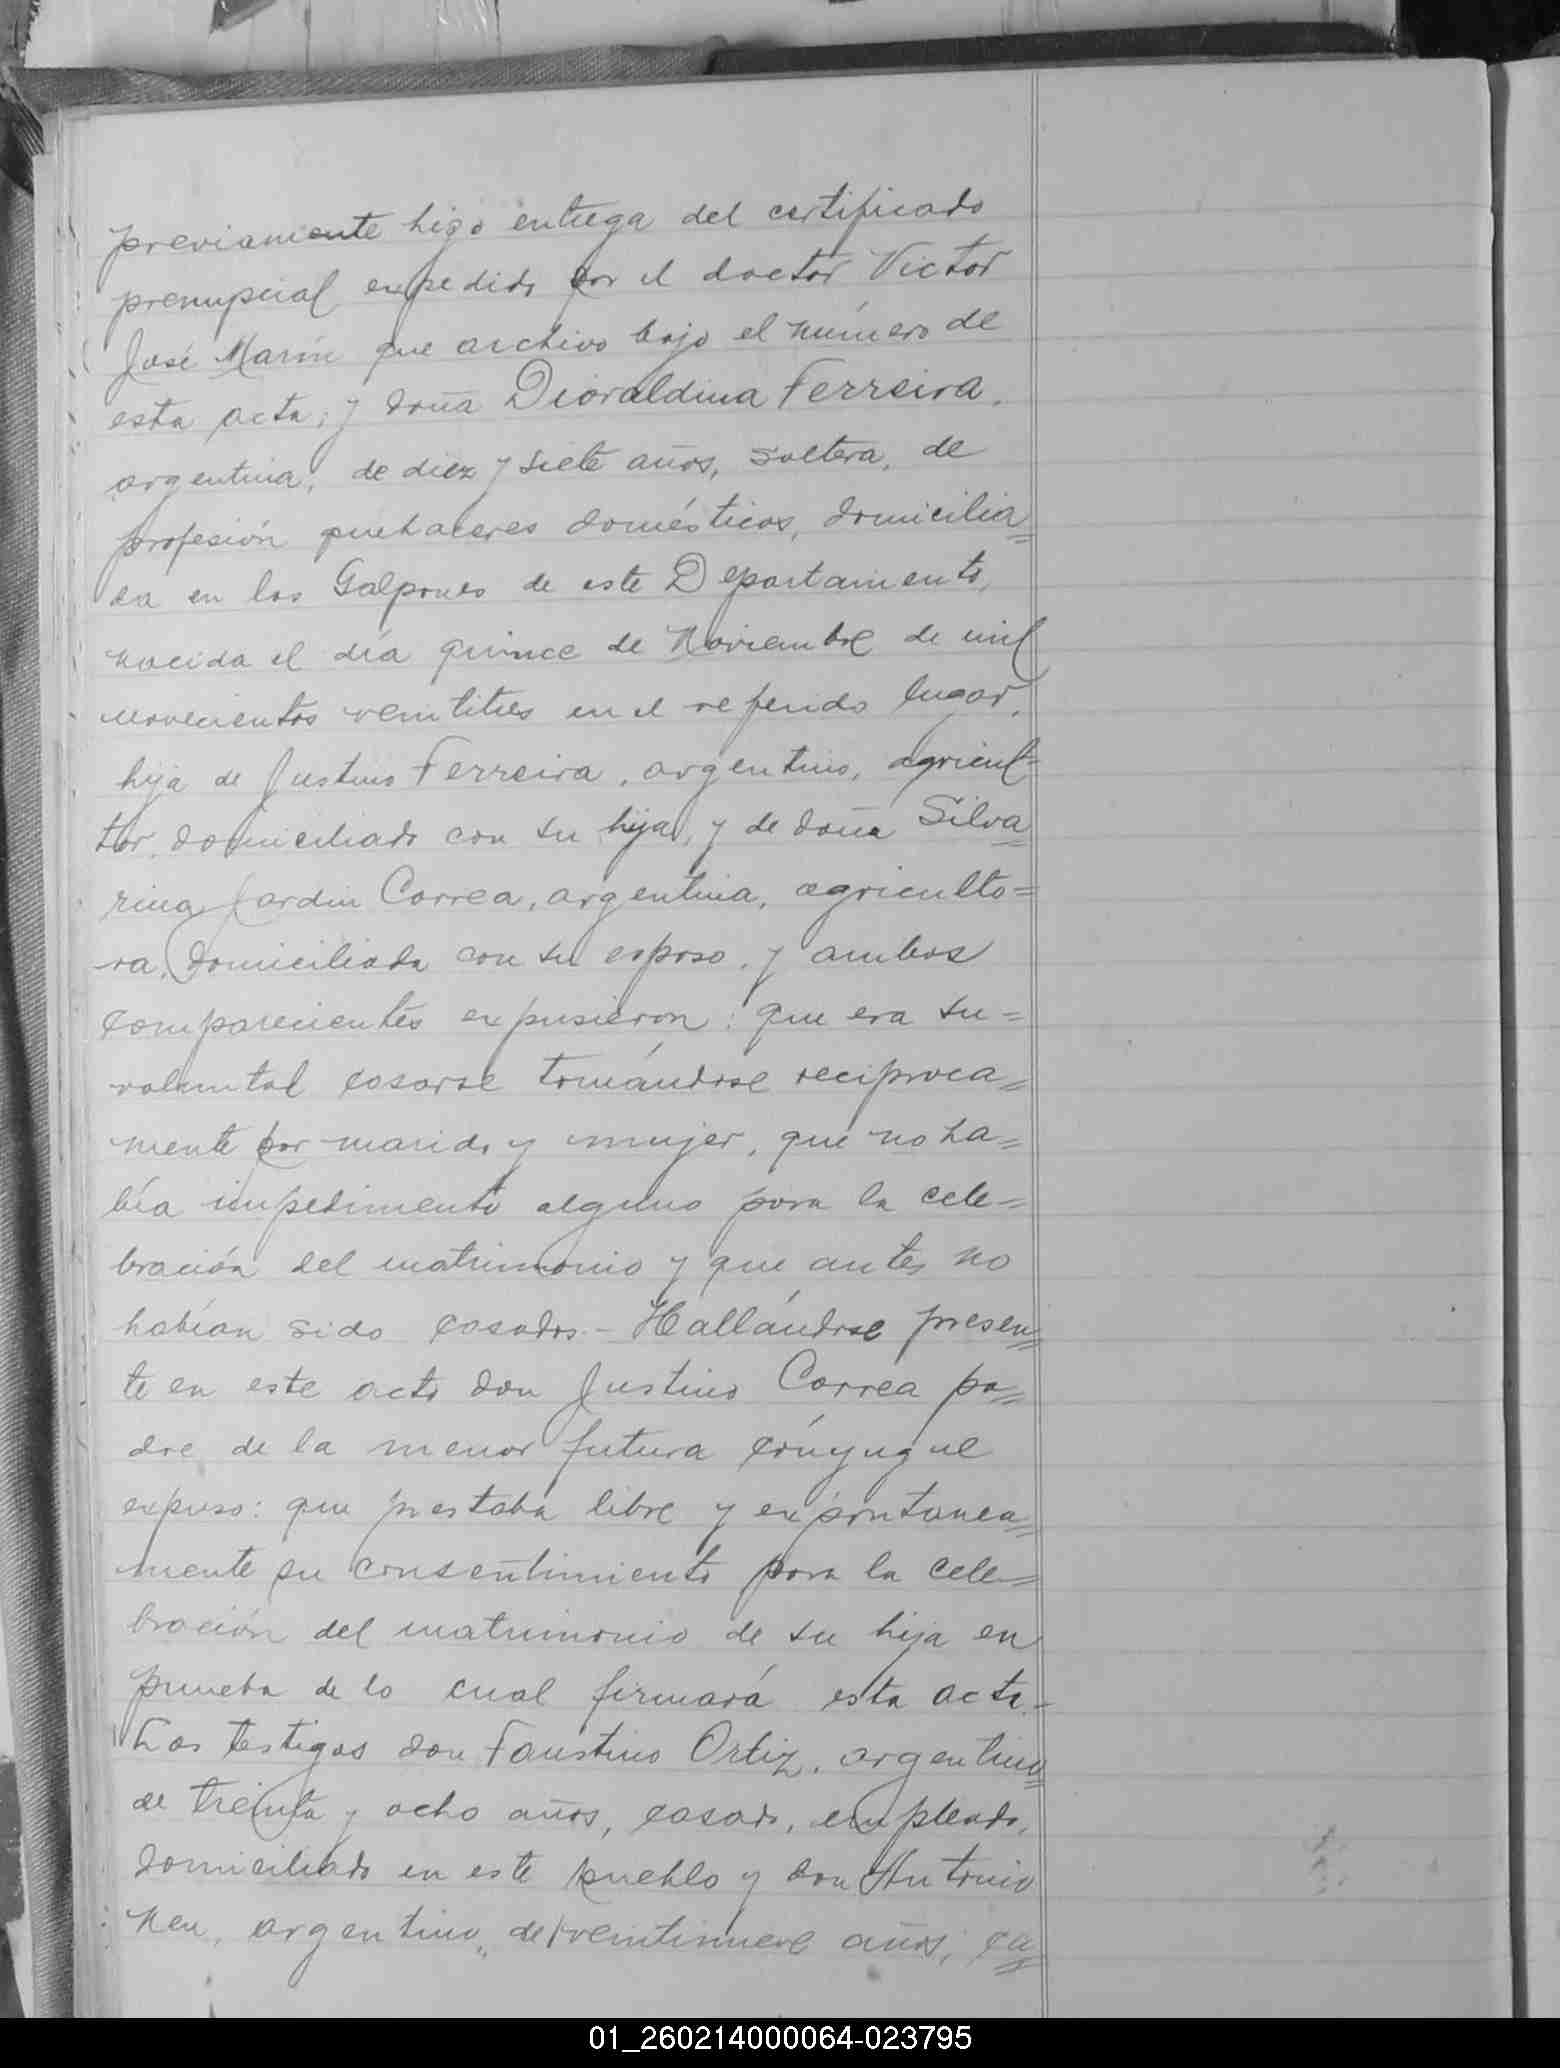 previamente hizo entrega del certificado
prenupcial expedido por el doctor Victor
José Marín que archivo bajo el número de
esta acta; y doña Dioraldina Ferreira,
argentina, de diez y siete años, soltera, de
profesión quehaceres domésticos, domicilia=
da en los Galpones de este Departamento,
nacida el día quince de Noviembre de mil
novecientos veintitres en el referido lugar,
hija de Justino Ferreira, argentino, agricul-
tor, domiciliado con su hija, y de doña Silva=
rina Jardin Correa, argentina, agriculto=
ra, domiciliada con su esposo, y ambos
comparecientes expusieron: que era su=
voluntad casarse tomándose reciproca=
mente por marido y mujer, que no ha=
bía impedimento alguno para la cele=
bración del matrimonio y que antes no
habían sido casados.- Hallándose presen=
te en este acto don Justino Correa pa=
dre de la menor futura cónyugue
expuso: que prestaba libre y expontanea=
mente su consentimiento para la cele=
bración del matrimonio de su hija en
prueba de lo cual firmará esta acta.-
Los testigos don Faustino Ortiz, argentino=
de treinta y ocho años, casado, empleado,
domiciliado en este pueblo y don Antonio
Neu, argentino, de veintinueve años, ca=
01_260214000064-023795